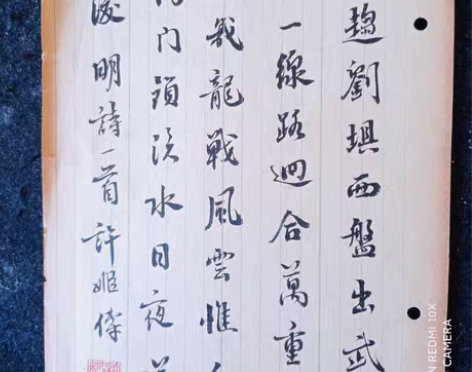 趨劉西盤出武
一線路迴合萬重
龍戰風雲惟
門鎖漢水日夜
明詩一首許姬傳
REDMI 10X
CAMERA